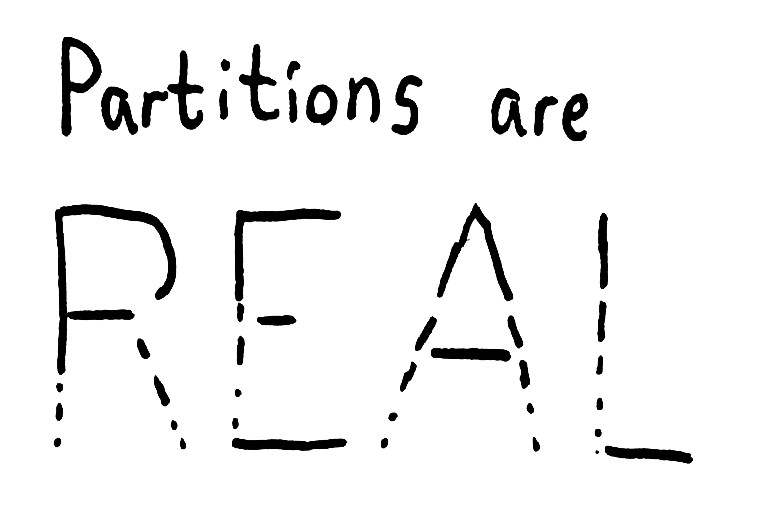 Partitions are
REAL